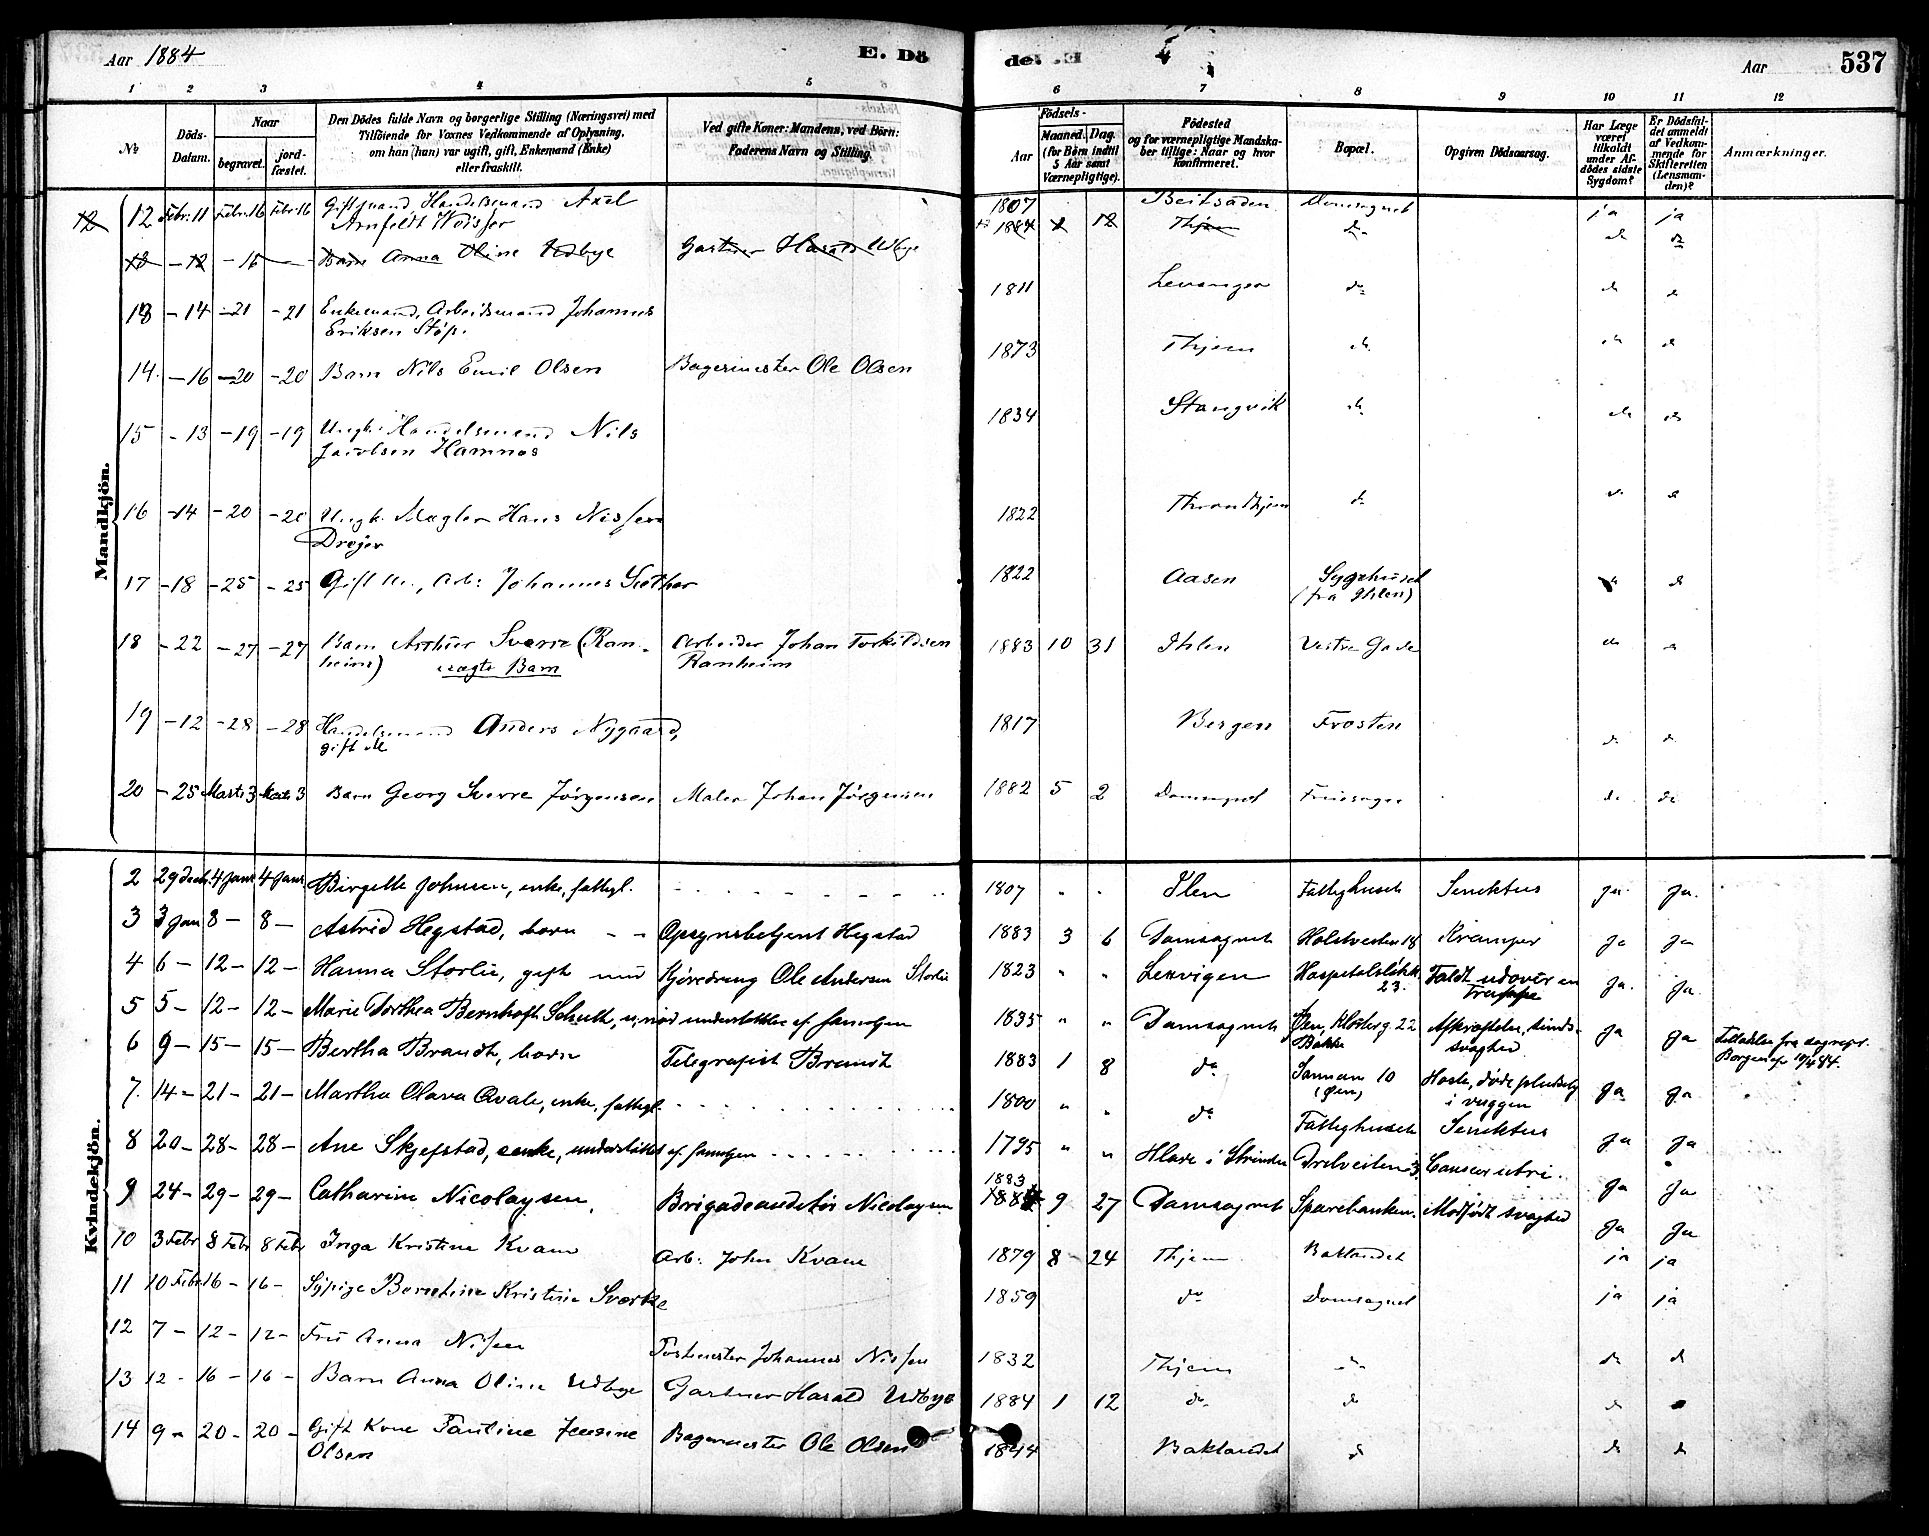 Aar 1884 E. Dö de. E 4 Aar 537
1 2 3 4 5 6 7 8 9 10 11 12
No
Döds-Datum.
Naar
begravet.
jordfæstet.
Den Dödes fulde Navn og borgerlige Stilling (Næringsvei) med
Tilföiende for Voxnes Vedkommende af Oplysning,
om han (hun) var ugift, gift, Enkemand (Enke)
eller fraskilt.
Ved gifte Koner: Mandens, ved Börn:
Faderens Navn og Stilling.
Födsels-
Aar
Maaned. Dag.
(for Börn indtil
5 Aar samt
Værnepligtige).
Födested
og for værnepligtige Mandska-
ber tillige: Naar og hvor
konfirmeret.
Bopæl.
Opgiven Dödsaarsag.
Har Læge
været
tilkaldt
under Af-
dödes sidste
Sygdom?
Er Dödsfal-
det anmeldt
af Vedkom-
mende for
Skifteretten
(Lensman-
den)?
Anmærkninger.
Mandkjön.
12 Febr. 11 Febr. 16 Febr. 16 Giftmand Handelsmand Axel 1807 Beitstaden Domsognet ja ja
Arnfeldt
12 - 12 - 16 Barn Anna Oline Udbye Gartner Harald Udbye 1884 1 12 Thjem do do do
13 - 14 - 21 - 21 Enkemand, Arbeidsmand Johannes 1811 Levanger do do do
Eriksen Støp.
14. - 16 - 20 - 20 Barn Nils Emil Olsen Bagermester Ole Olsen 1873 Thjem do do do
15 - 13 - 19 - 19 Ungk. Handelsmand Nils 1834 Stangvik do do do
Jacobsen Hamnes
16 - 14 - 20 - 20 Ungk. Mægler Hans Nissen 1822 Throndhjem do do do
Drejer
17 - 18 - 25 - 25 Gift M., Arb: Johannes 1822 Aasen Sygehuset do do
(fra Ihlen)
18 - 22 - 27 - 27 Barn Arthur Sverre (Ran- Arbeider Johan Torkildsen 1883 10 31 Ihlen Vestre Gade do do
heim) ægte Barn Ranheim
19 - 12 - 28 - 28 Handelsmand Anders Nygaard, 1817 Bergen Frosten do do
gift M
20 - 25 Marts 3 Marts 3 Barn Georg Sverre Jørgensen Maler Johan Jørgensen 1882 5 2 Domsognet do do
Kvindekjön.
2 29 Decb. 4 Jan. 4 Jan. Birgette Johnsen, enke, fattigl. 1807 " " Ilen Fattighuset Senektus Ja. Ja.
3 3 Jan 8 - 8 - Astrid Hegstad, barn - - Opsynsbetjent Hegstad 1883 3 6 Domsognet Holstveiten 18 Kramper Ja Ja
4 6 - 12 - 12 - Hanna Storlie, gift med Kjøredreng Ole Andersen Storlie 1823 " " Lexvigen Hospitalsløkk. Faldt udover en Ja. Ja.
23. Trappe
5 5 - 12 - 12 - Marie Dorthea Bernhoft Schult, u, nød understøttelse af familien 1835 " " Domsognet Ilen, Klosterg. 22 Afkræftelse, sinds- Ja Ja
svaghed
6 9 - 15 - 15 - Bertha Brandt, barn Telegrafist Brandt 1883 1 8 do Bakke Hoste, døde pludselig
Sannan 10 i vuggen
(Øen)
7. 14 - 21 - 21 - Martha Olava Qvale, enke, fattigl. 1800 " " do Fattighuset Senektus Ja Ja
8 20 - 28 - 28 - Ane Skjefstad, enke, understøttet af familien 1795 " " Hlade i Strinden Cancer utri. Ja Ja
9 24 - 29 - 29 - Catharine Nicolaysen, Brigadeauditør Nicolaysen 1883 9 27 Domsognet Sparebanken. Medfødt svaghed Ja Ja
10 3 Febr 8 Febr 8 Febr Inga Kristine Kvam Arb: John Kvam 1879 8 - 24 Thjem Baklandet ja ja
11 10 Febr 16 - 16 - Sypige Berntine Kristine 1859 do Domsognet ja ja
12 7 - 12 - 12 - Fru Anna Nissen Postmester Johannes Nissen 1832 Thjem do do do
13 12 - 16 - 16 - Barn Anna Oline Udbye Gartner Harald Udbye 1884 1 12 do do do
14 9 - 20 - 20 - Gift Kone Pauline Jensine Bagermester Ole Olsen 1844 Baklandet do do do
Olsen